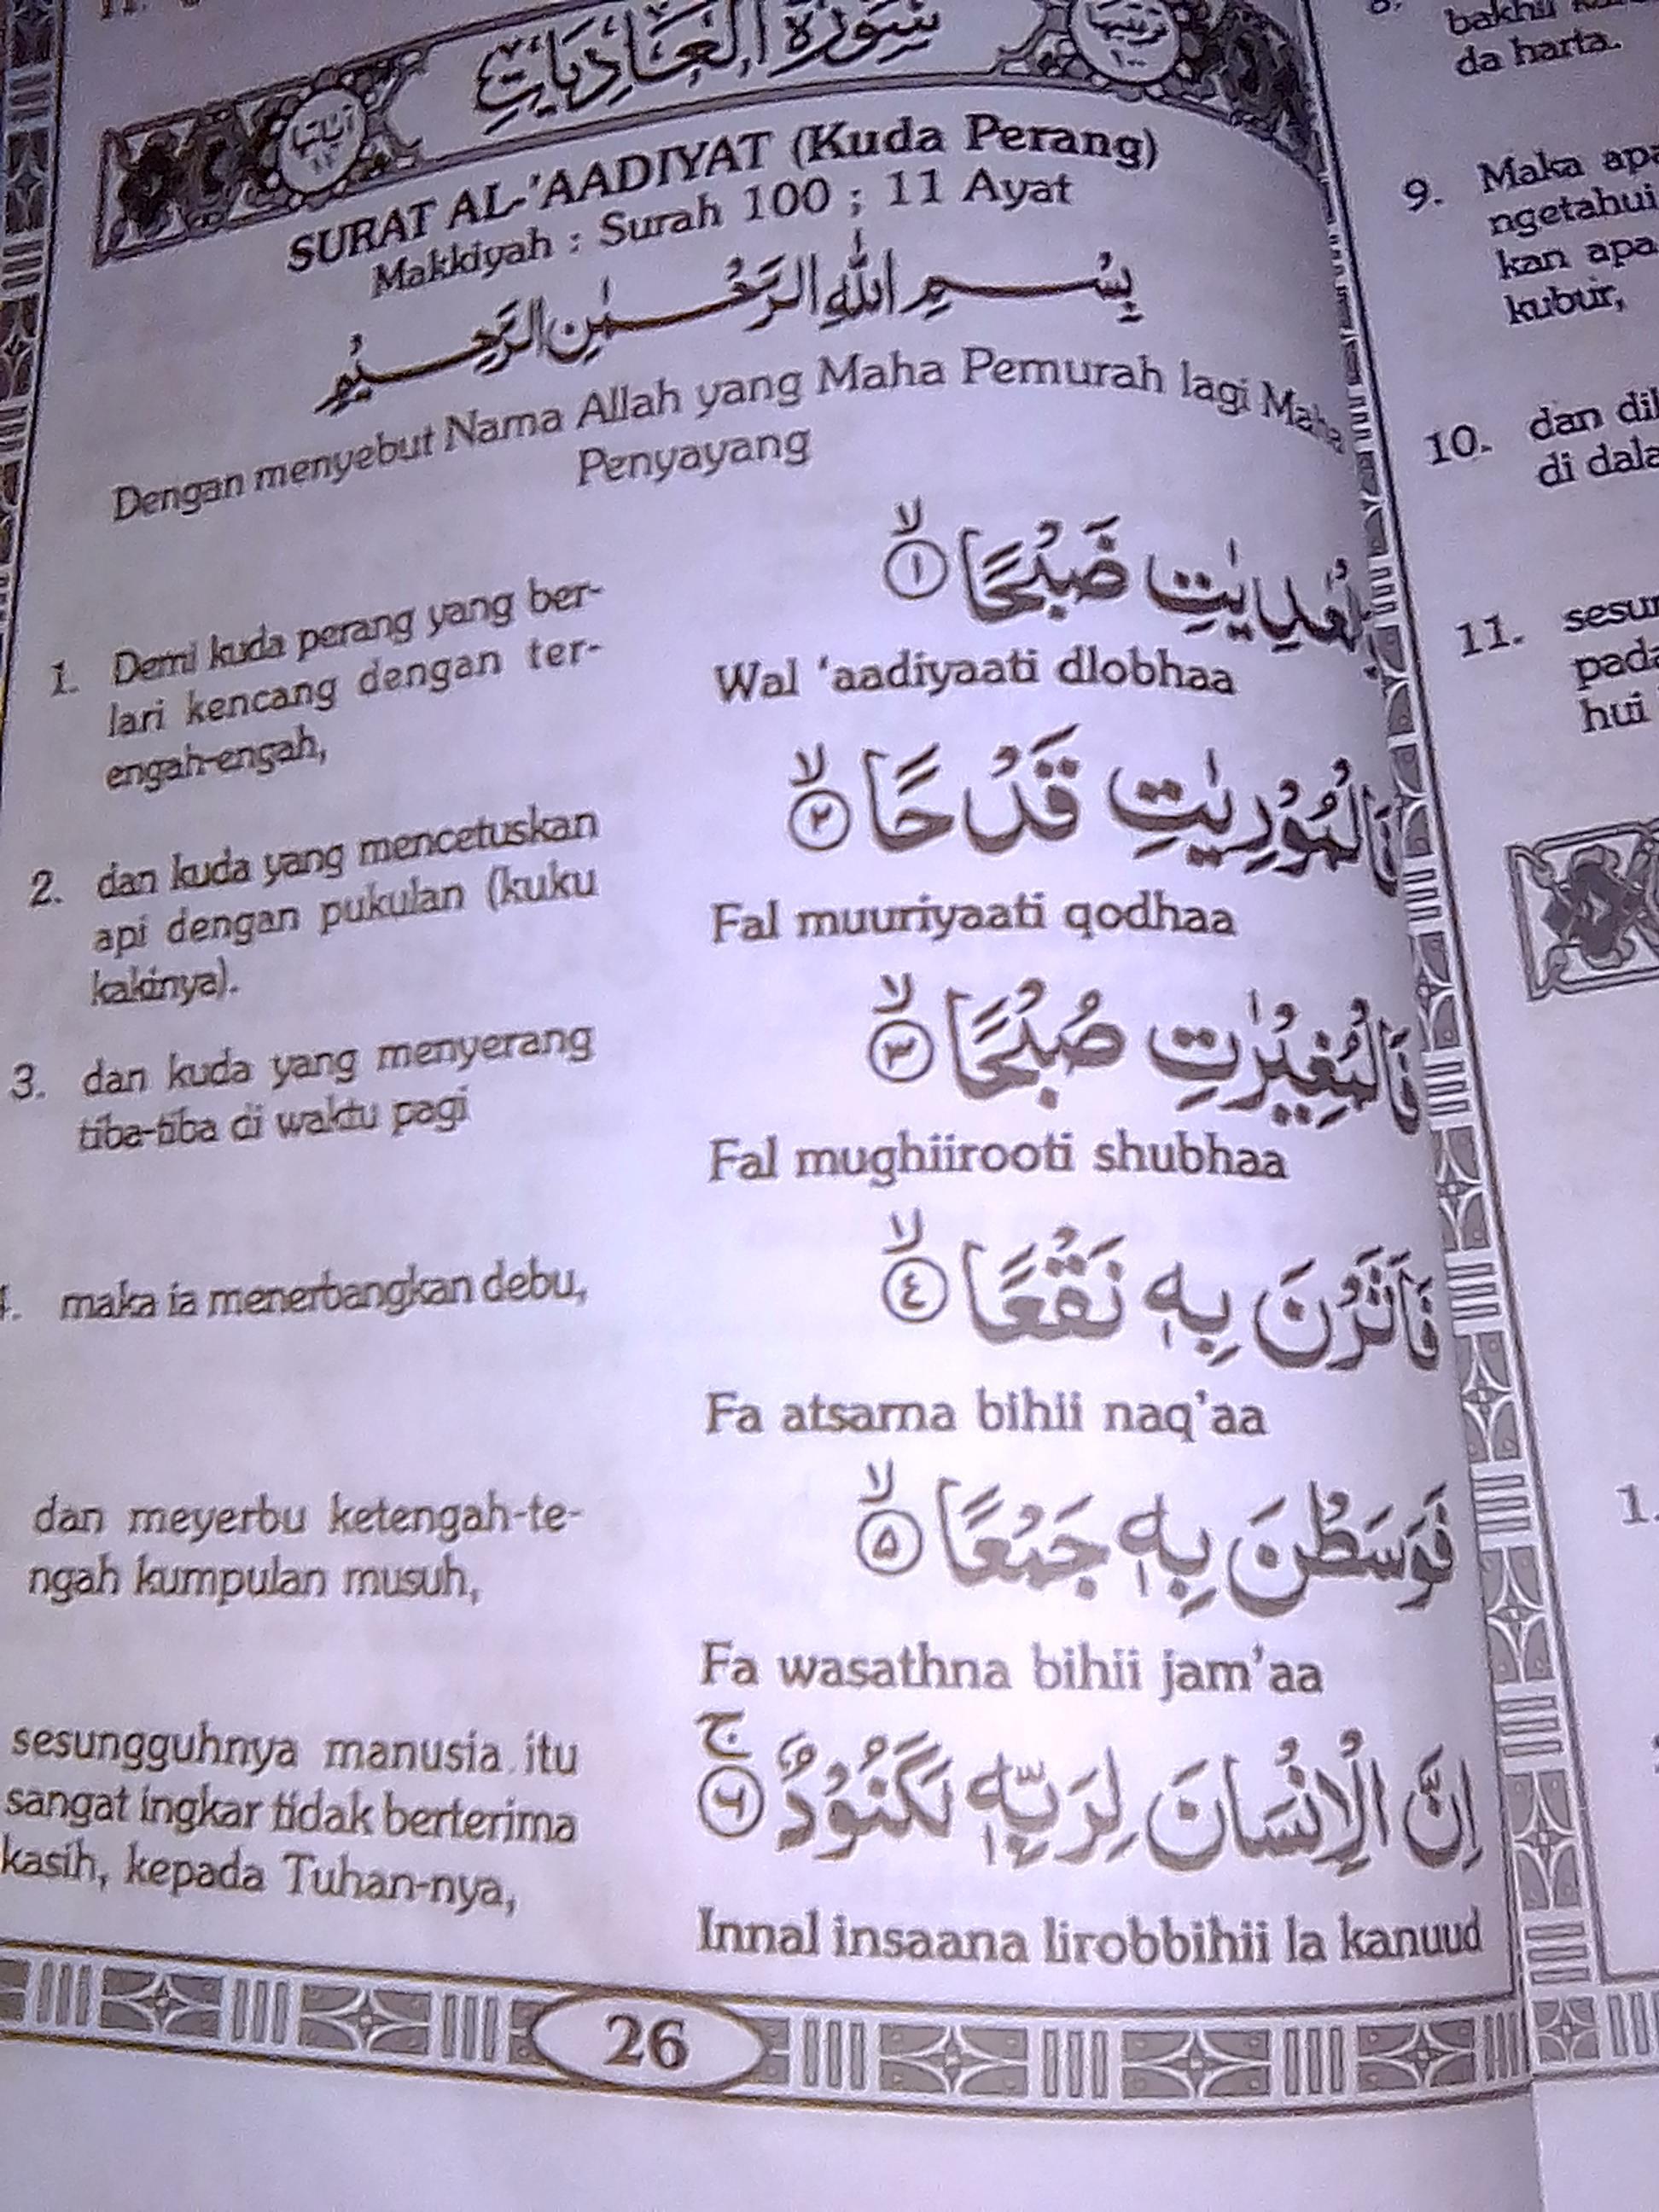 سورة العاديات
SURAT AL-'AADIYAT (Kuda Perang)
Makkiyah : Surah 100 ; 11 Ayat
بِسْمِ اللهِ الرَّحْمٰنِ الرَّحِيْمِ
Dengan menyebut Nama Allah yang Maha Pemurah lagi Maha
Penyayang
1. Demi kuda perang yang ber-
lari kencang dengan ter-
engah-engah,
ضَبْحًا ١
Wal 'aadiyaati dlobhaa
2. dan kuda yang mencetuskan
api dengan pukulan (kuku
kakinya).
فَالْمُوْرِيٰتِ قَدْحًا ٢
Fal muuriyaati qodhaa
3. dan kuda yang menyerang
tiba-tiba di waktu pagi
فَالْمُغِيْرٰتِ صُبْحًا ٣
Fal mughiirooti shubhaa
maka ia menerbangkan debu,
فَاَثَرْنَ بِهٖ نَقْعًا ٤
Fa atsarna bihii naq'aa
dan meyerbu ketengah-te-
ngah kumpulan musuh,
فَوَسَطْنَ بِهٖ جَمْعًا ۵
Fa wasathna bihii jam'aa
sesungguhnya manusia itu
sangat ingkar tidak berterima
kasih, kepada Tuhan-nya,
اِنَّ الْاِنْسَانَ لِرَبِّهٖ لَكَنُوْدٌ ۚ ٦
Innal insaana lirobbihii la kanuud
26
da harta.
9. Maka
ngetahui
kan apa
kubur,
10. dan
di
11.
hui
1.